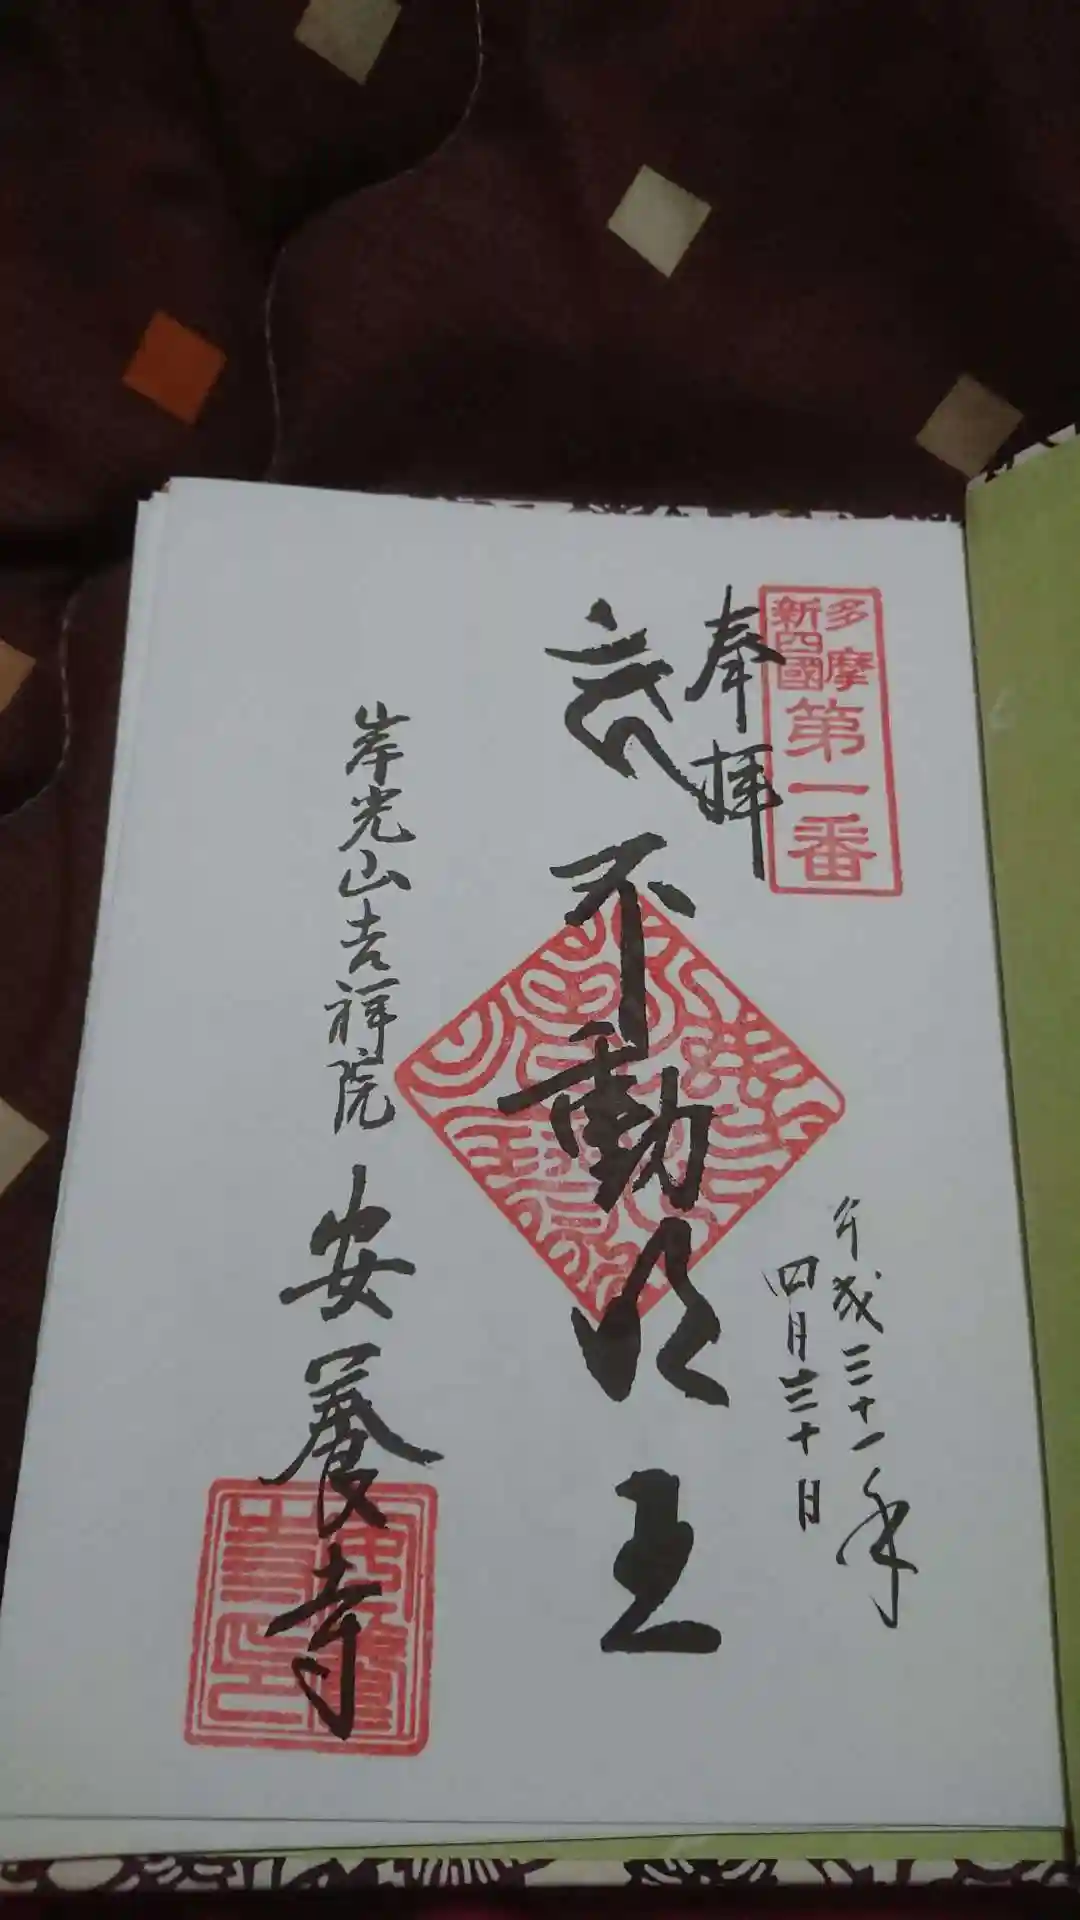 多摩
新四國
第一番
奉拝
不動明王
平成三十一年
四月三十日
岸光山吉祥院
安養寺